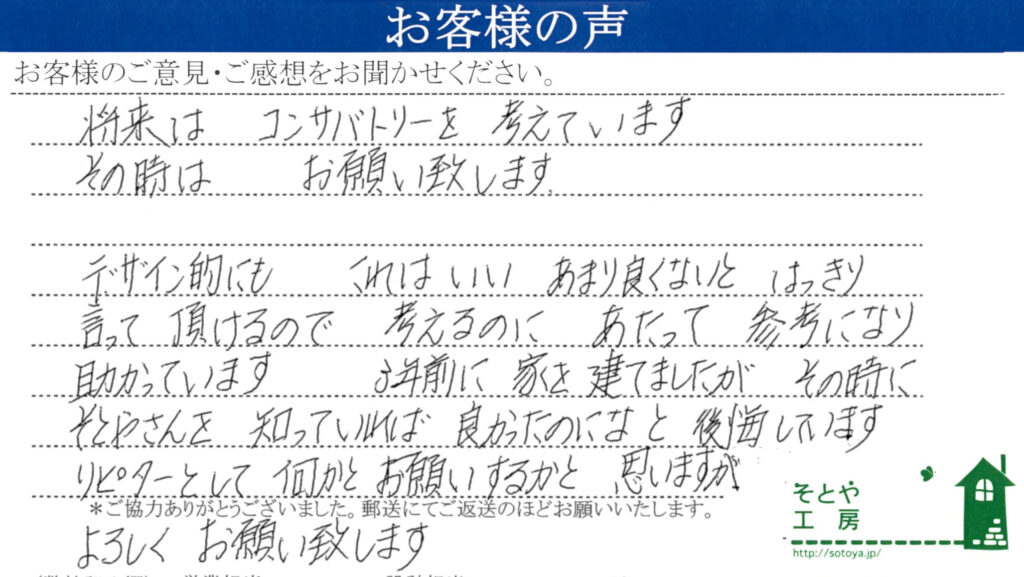 お客様の声
お客様のご意見・ご感想をお聞かせください。
将来は コンサバトリーを 考えています
その時は お願い致します
デザイン的にも これはいい あまり良くないと はっきり
言って 頂けるので 考えるのに あたって 参考になり
助かっています 3年前に 家を 建てましたが その時に
そとやさんを 知っていれば 良かったのになと 後悔しています
リピターとして 何かと お願いするかと 思いますが
＊ご協力ありがとうございました。郵送にてご返送のほどお願いいたします。
よろしく お願い致します
そとや
工房
http://sotoya.jp/